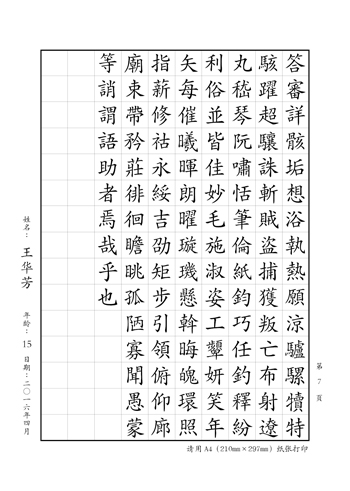 答審詳骸垢想浴執熱願涼驢騾犢特
駭躍超驤誅斬賊盜捕獲叛亡布射遼
丸嵇琴阮嘯恬筆倫紙鈞巧任釣釋紛
利俗並皆佳妙毛施淑姿工顰妍笑年
矢每催曦暉朗曜璇璣懸幹晦魄環照
指薪修祜永綏吉劭矩步引領俯仰廊
廟束帶矜莊徘徊瞻眺孤陋寡聞愚蒙
等誚謂語助者焉哉乎也
姓名：王华芳 年龄：15 日期：二〇一六年四月
第 7 页
请用A4（210mm×297mm）纸张打印